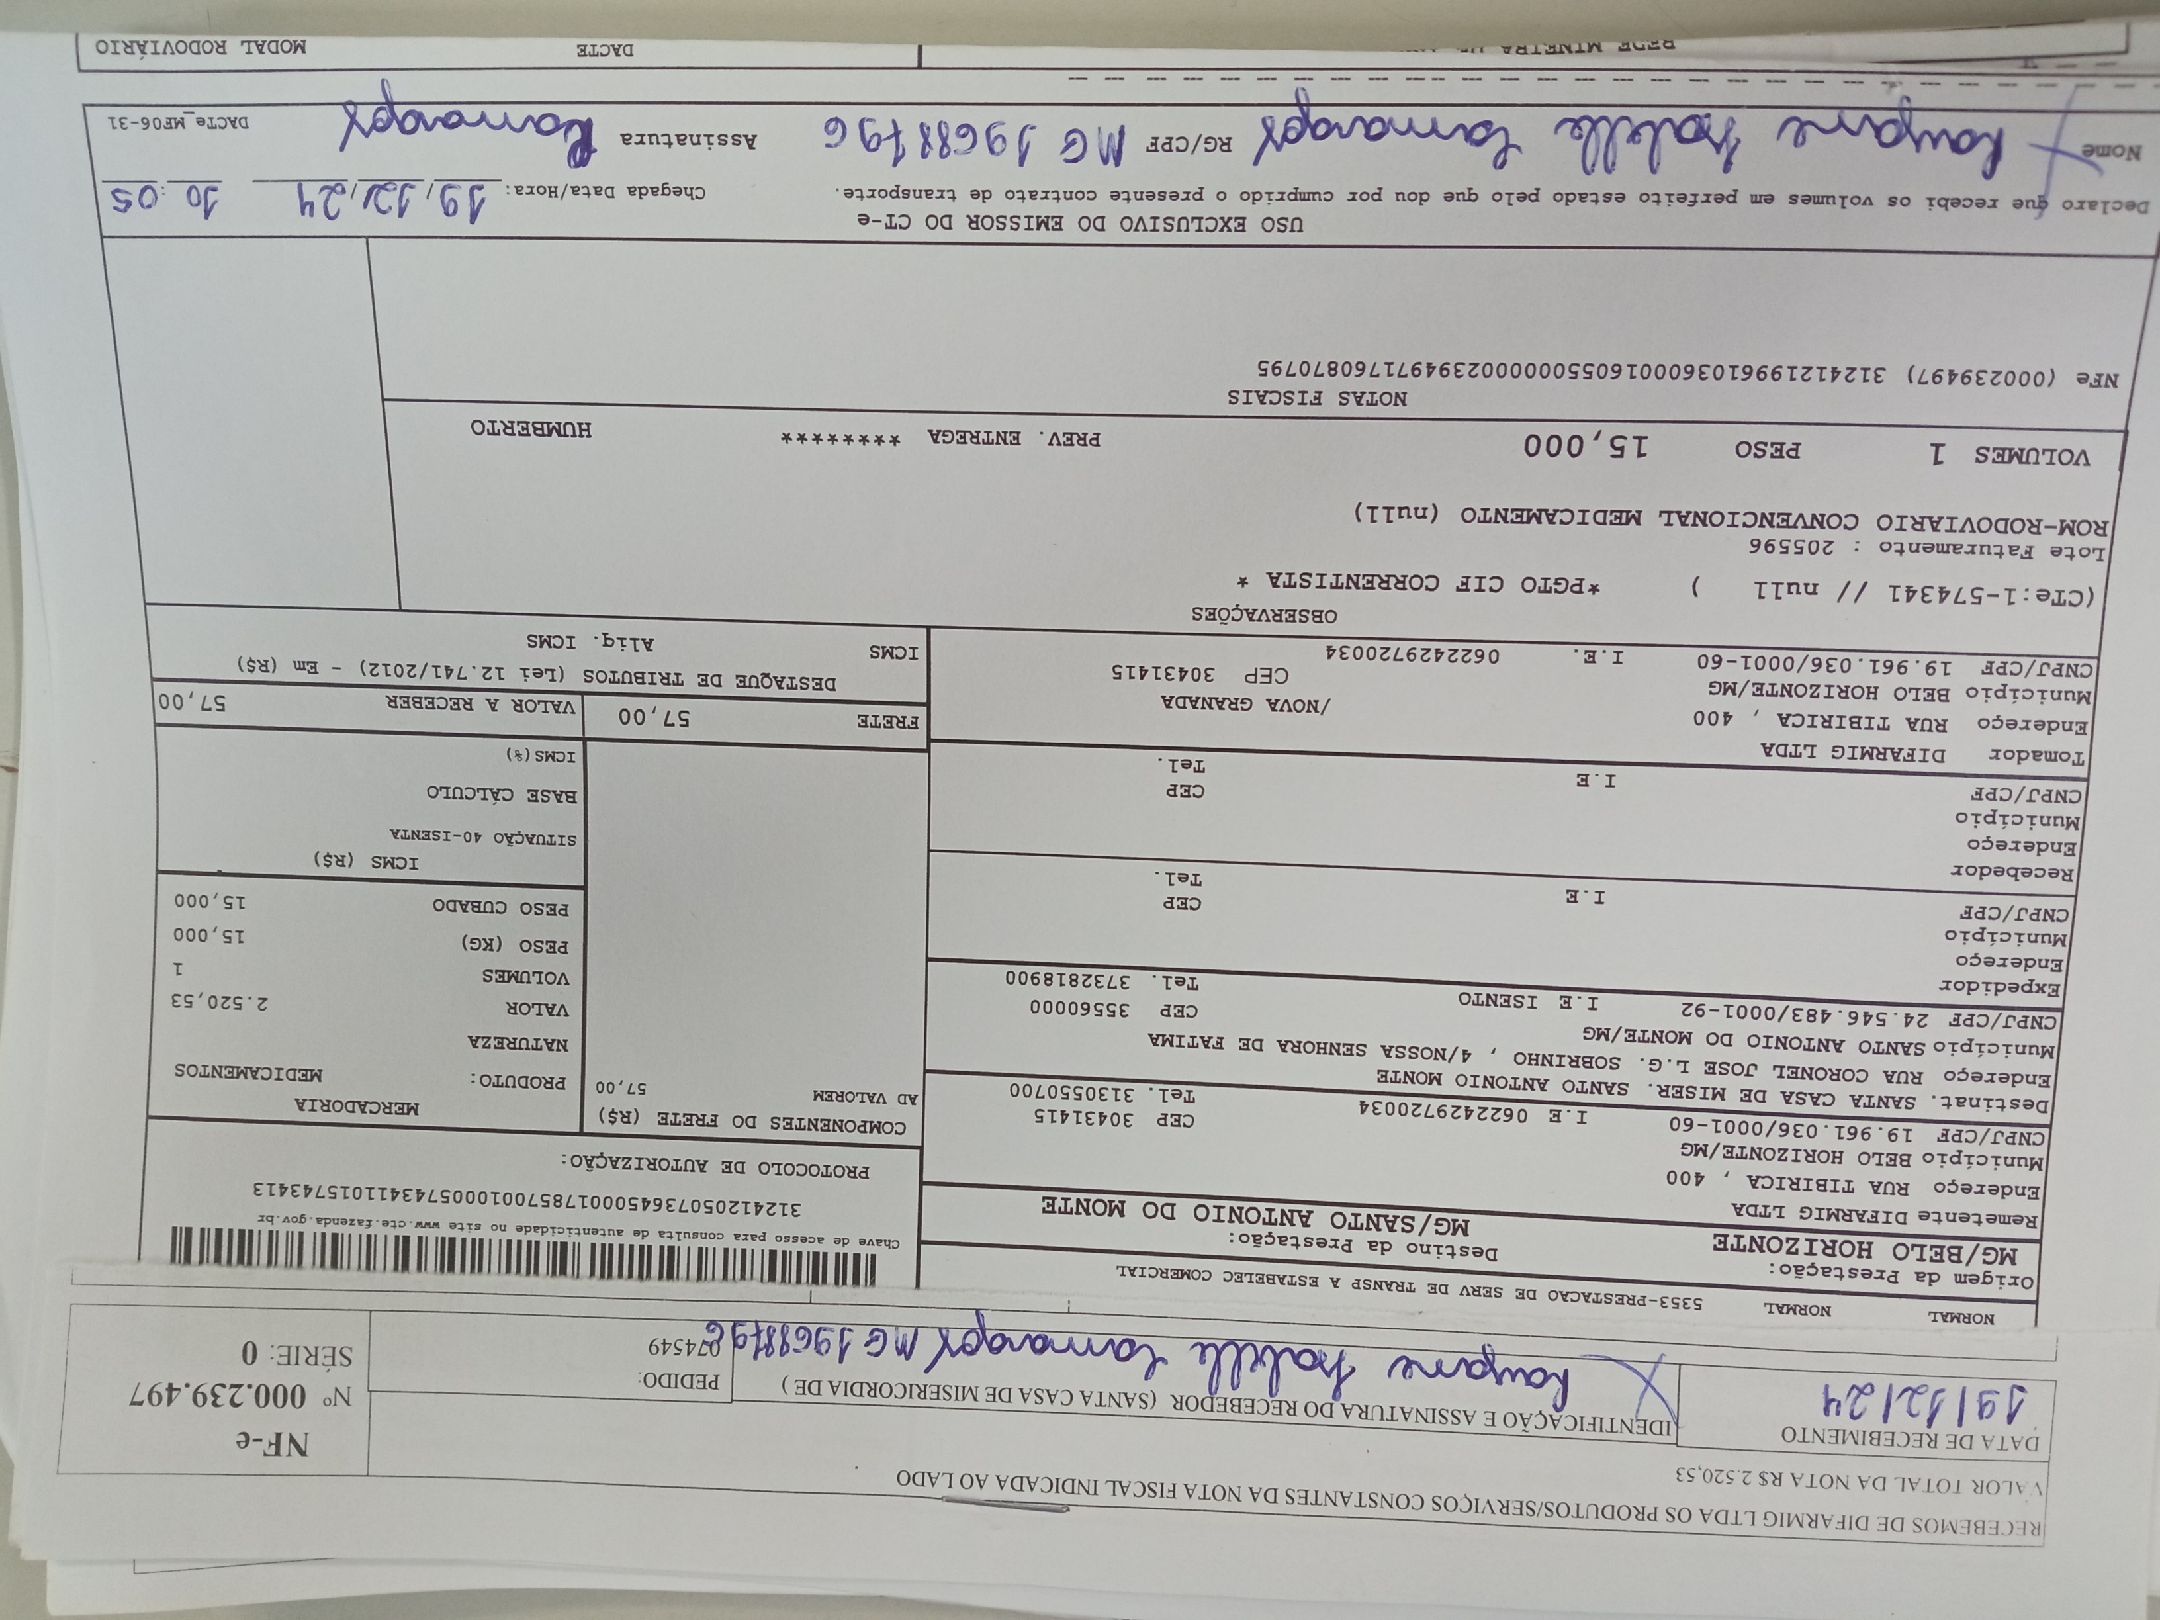 RECEBEMOS DE DIFARMIG LTDA OS PRODUTOS/SERVIÇOS CONSTANTES DA NOTA FISCAL INDICADA AO LADO
VALOR TOTAL DA NOTA R$ 2.520,53
NF-e
Nº 000.239.497
SÉRIE: 0
DATA DE RECEBIMENTO
19/12/24
IDENTIFICAÇÃO E ASSINATURA DO RECEBEDOR (SANTA CASA DE MISERICORDIA DE )
Isabelle Camargos MG 19688796
PEDIDO:
074549
NORMAL NORMAL 5353-PRESTACAO DE SERV DE TRANSP A ESTABELEC COMERCIAL
Origem da Prestação:
MG/BELO HORIZONTE
Destino da Prestação:
MG/SANTO ANTONIO DO MONTE
Chave de acesso para consulta de autenticidade no site www.cte.fazenda.gov.br
31241205073645000178570010005743411015743413
PROTOCOLO DE AUTORIZAÇÃO:
Remetente DIFARMIG LTDA
Endereço RUA TIBIRICA , 400
Município BELO HORIZONTE/MG CEP 30431415
CNPJ/CPF 19.961.036/0001-60 I.E 0622429720034 Tel. 3130550700
Destinat. SANTA CASA DE MISER. SANTO ANTONIO MONTE
Endereço RUA CORONEL JOSE L.G. SOBRINHO , 4/NOSSA SENHORA DE FATIMA
Município SANTO ANTONIO DO MONTE/MG CEP 35560000
CNPJ/CPF 24.546.483/0001-92 I.E ISENTO Tel. 3732818900
Expedidor
Endereço
Município CEP
CNPJ/CPF I.E Tel.
Recebedor
Endereço
Município CEP
CNPJ/CPF I.E Tel.
Tomador DIFARMIG LTDA
Endereço RUA TIBIRICA , 400 /NOVA GRANADA
Município BELO HORIZONTE/MG CEP 30431415
CNPJ/CPF 19.961.036/0001-60 I.E. 0622429720034
COMPONENTES DO FRETE (R$)
AD VALOREM 57,00
MERCADORIA
PRODUTO: MEDICAMENTOS
NATUREZA
VALOR 2.520,53
VOLUMES 1
PESO (KG) 15,000
PESO CUBADO 15,000
ICMS (R$)
SITUAÇÃO 40-ISENTA
BASE CÁLCULO
ICMS(%)
FRETE 57,00 VALOR A RECEBER 57,00
DESTAQUE DE TRIBUTOS (Lei 12.741/2012) - Em (R$)
ICMS Aliq. ICMS
OBSERVAÇÕES
(CTe:1-574341 // null ) *PGTO CIF CORRENTISTA *
Lote Faturamento : 205596
ROM-RODOVIARIO CONVENCIONAL MEDICAMENTO (null)
VOLUMES 1 PESO 15,000 PREV. ENTREGA ******** HUMBERTO
NOTAS FISCAIS
NFe (000239497) 31241219961036000160550000002394971760870795
USO EXCLUSIVO DO EMISSOR DO CT-e
Declaro que recebi os volumes em perfeito estado pelo que dou por cumprido o presente contrato de transporte.
Chegada Data/Hora: 19/12/24 10:05
Nome Isabelle Camargos RG/CPF MG 19688796 Assinatura Camargos
DACTe_MF06-31
REDE MINEIRA DACTE MODAL RODOVIÁRIO